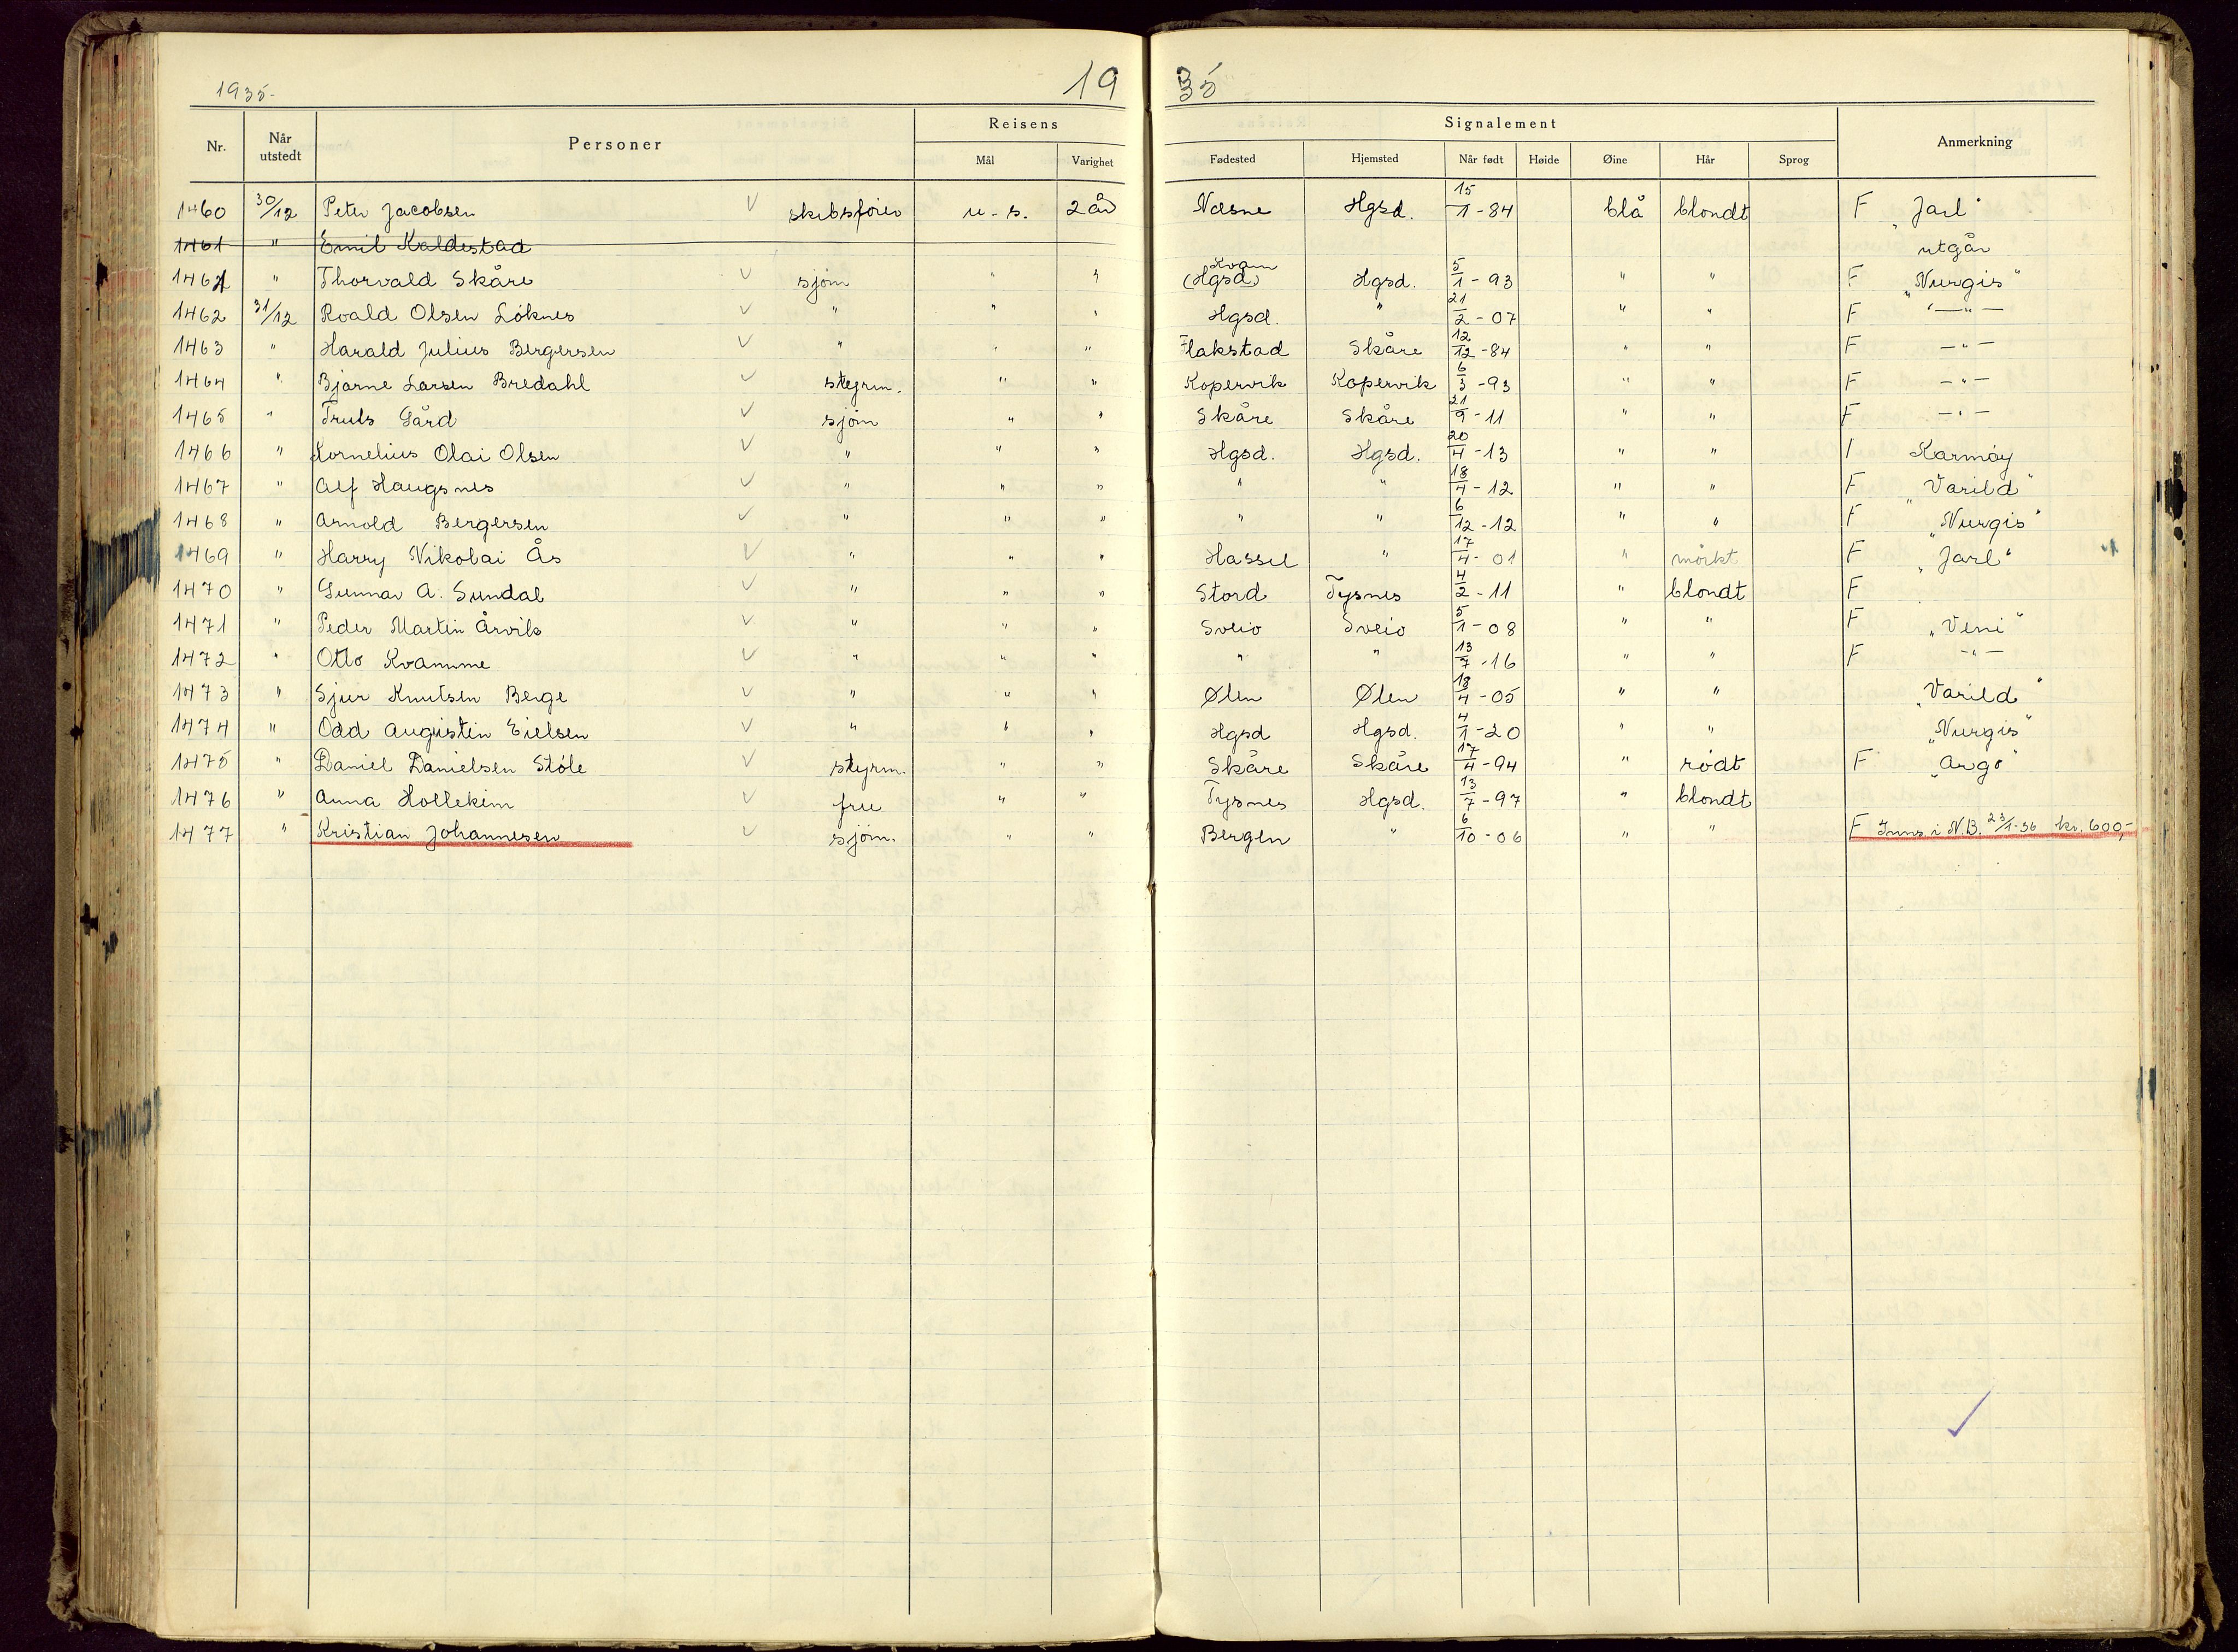 1935.
19 35
Nr. Når utstedt Personer Reisens Mål Varighet Signalement Fødested Hjemsted Når født Høide Øine Hår Sprog Anmerkning
1460 30/12 Peter Jacobsen skibsfører u.-s. 2 år Næsne Hgsd. 15/1-84 blå blondt F „Jarl"
1461 " Emil Kaldestad utgår
1461 " Thorvald Skåre sjøm " " Kvam (Hgsd) Hgsd. 5/1-93 " " F „Nurgis"
1462 31/12 Roald Olsen Løknes " " " Hgsd. " 21/2-07 " " F —"—
1463 " Harald Julius Bergersen " " " Flakstad Skåre 12/12-84 " " F —"—
1464 " Bjarne Larsen Bredahl styrm. " " Kopervik Kopervik 6/3-93 " " F —"—
1465 " Truls Gård sjøm " " Skåre Skåre 21/9-11 " " F —"—
1466 " Kornelius Olai Olsen " " " Hgsd. Hgsd. 20/4-13 " " Karmøy
1467 " Alf Haugsnes " " " " " 18/4-12 " " F „Varild"
1468 " Arnold Bergersen " " " " " 6/12-12 " " F „Nurgis"
1469 " Harry Nikolai Ås " " " Hassel " 17/4-01 " mørkt F „Jarl"
1470 " Gunnar A. Sundal " " " Stord Tysnes 4/2-11 " blondt F
1471 " Peder Martin Årvik " " " Sveio Sveio 5/1-08 " " F „Veni"
1472 " Otto Kvamme " " " " " 13/7-16 " " F —"—
1473 " Sjur Knutsen Berge " " " Ølen Ølen 18/4-05 " " „Varild"
1474 " Odd Augustin Eielsen " " " Hgsd Hgsd. 4/1-20 " " „Nurgis"
1475 " Daniel Danielsen Støle styrm. " " Skåre Skåre 17/4-94 " rødt F „Argo"
1476 " Anna Hollekim frue " " Tysnes Hgsd. 13/7-97 " blondt
1477 " Kristian Johannesen sjøm. " " Bergen " 6/10-06 " " F Inns i N.B. 23/1-36 kr. 600,-